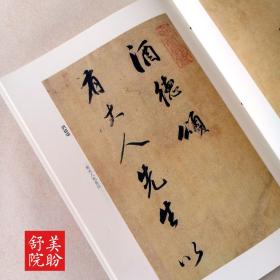 酒德頌
有大人先生以
美盼
舒院